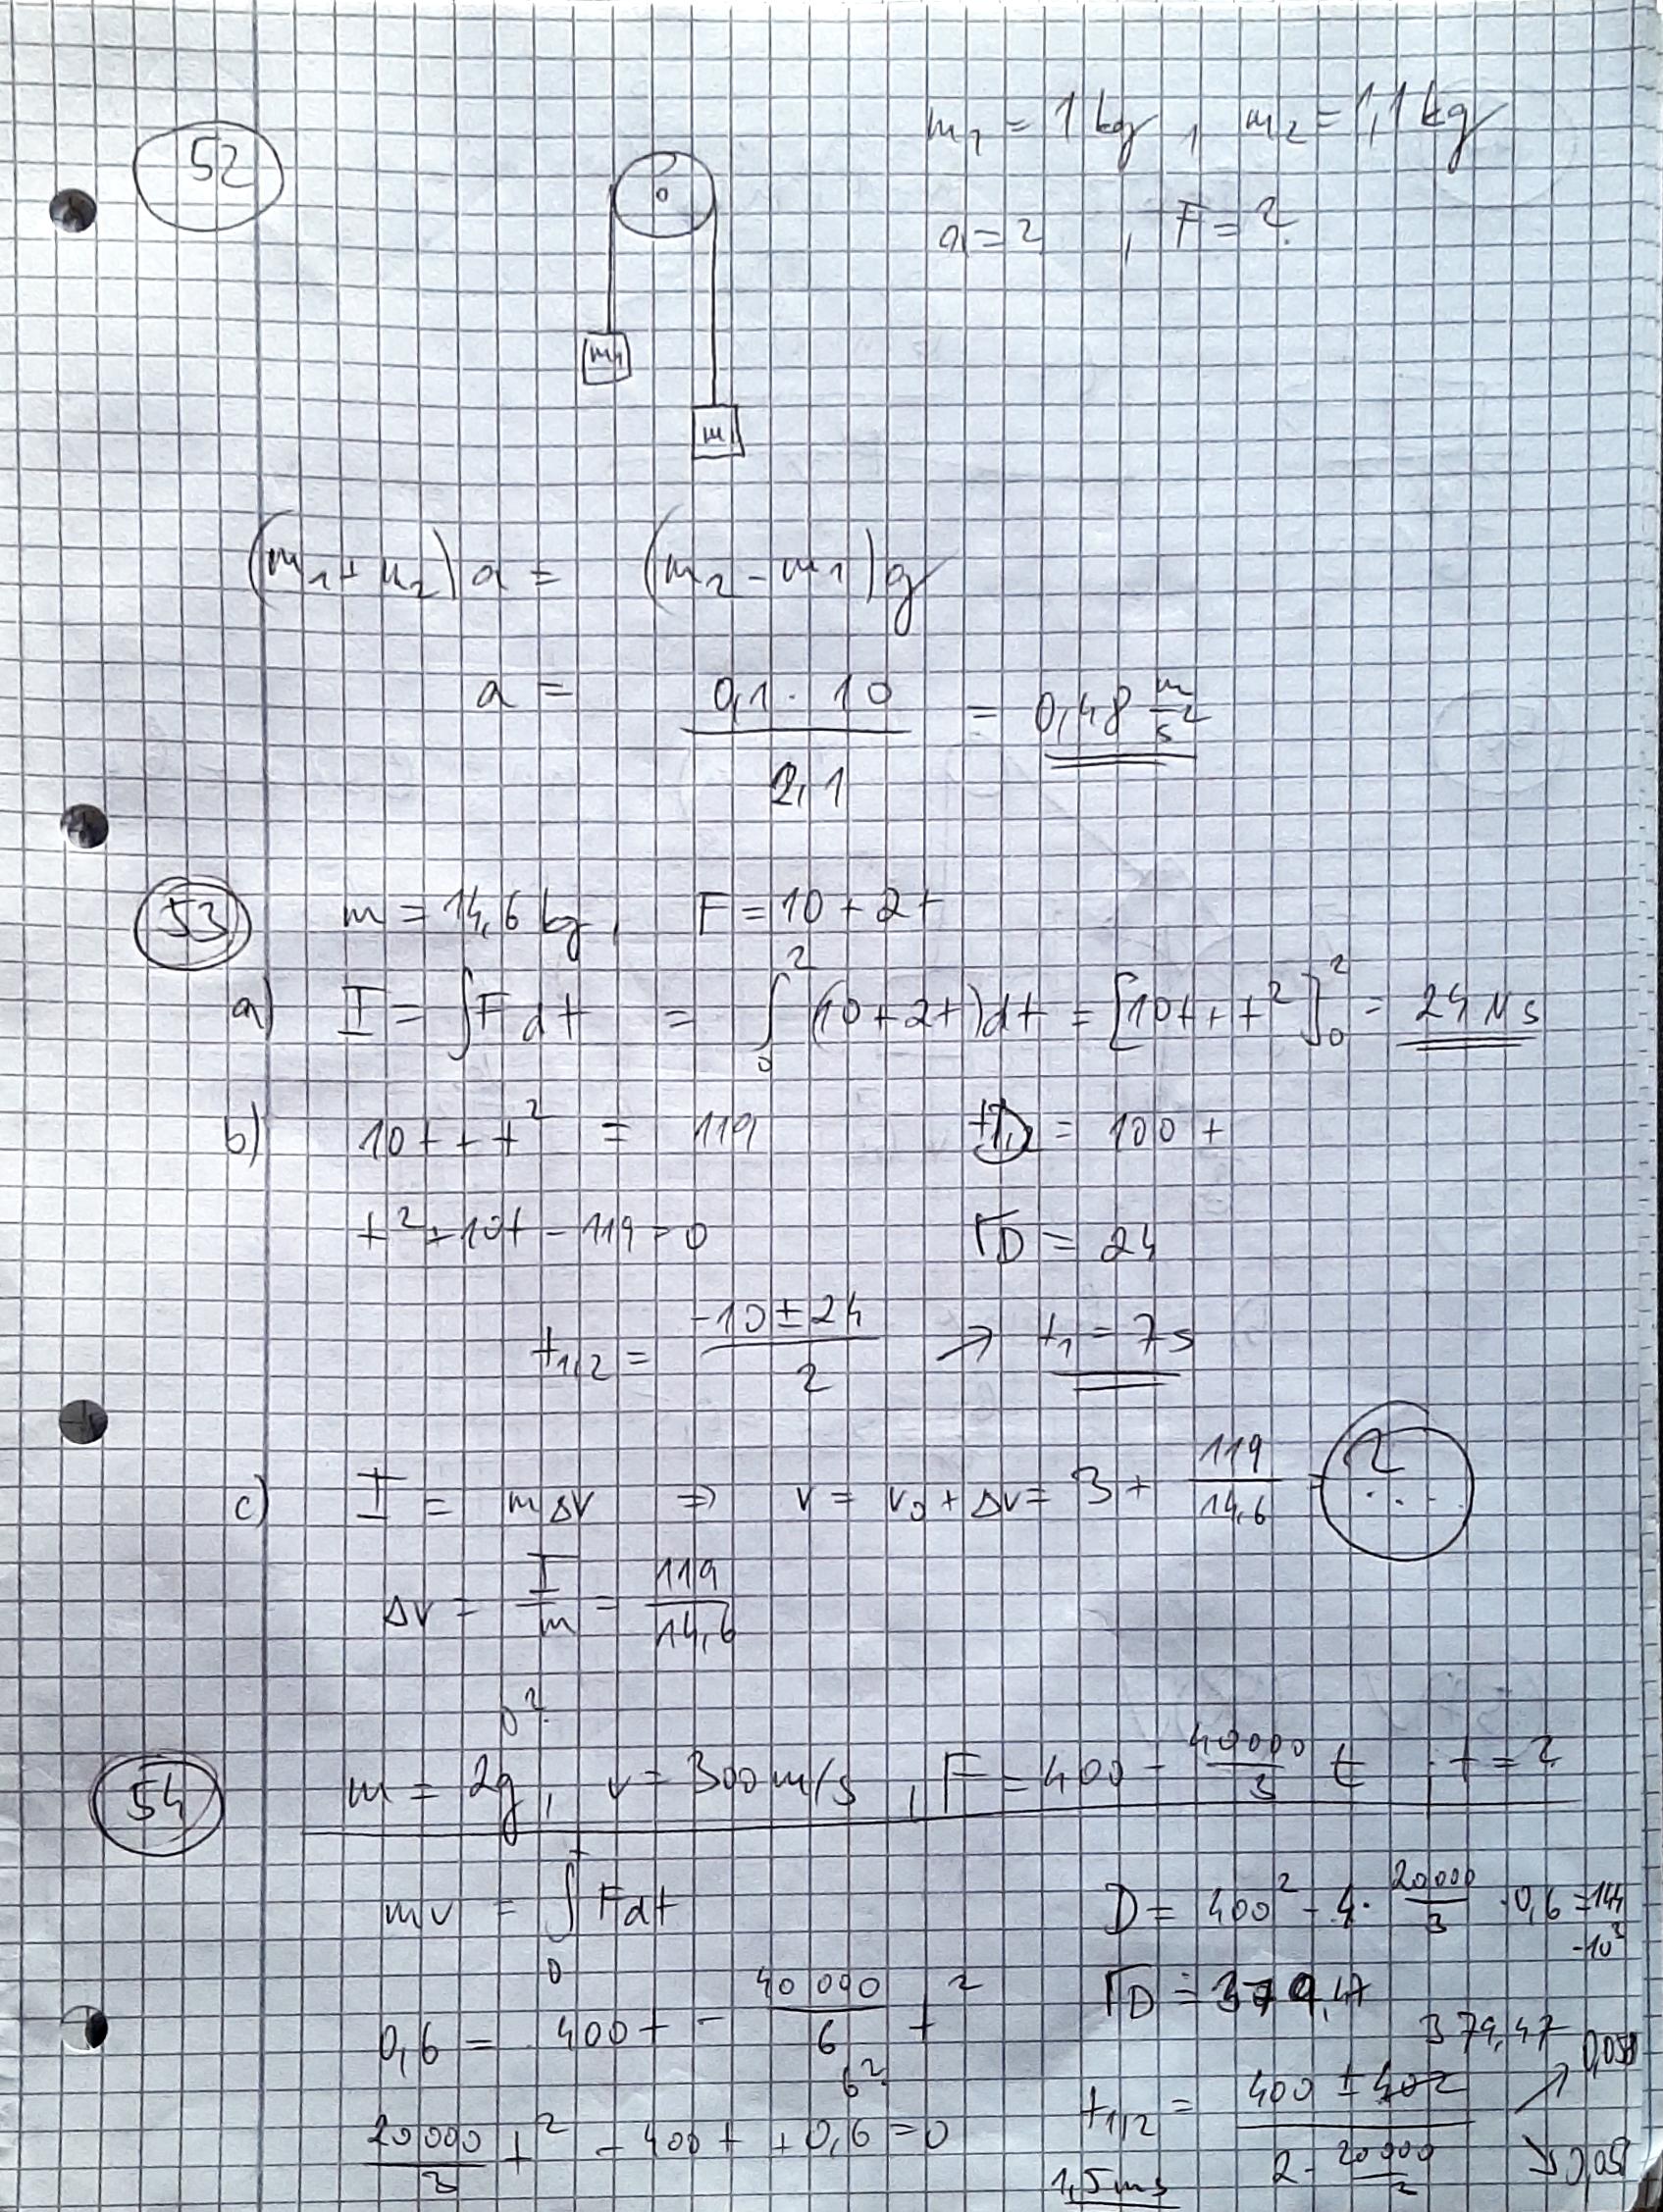 52
m₁ = 1 kg , m₂ = 1,1 kg
a = ? , F = ?
m1
m
(m₁ + m₂) a = (m₂ - m₁) g
a = 0,1 · 10 / 2,1 = 0,48 m/s²
53 m = 14,6 kg , F = 10 + 2t
a) I = ∫ F dt = ∫₀² (10 + 2t) dt = [10t + t²]₀² = 24 Ns
b) 10t + t² = 119 D = 100 +
t² + 10t - 119 = 0 √D = 24
t₁,₂ = (-10 ± 24) / 2 → t₁ = 7s
c) I = mΔv ⇒ v = v₀ + Δv = 3 + 119/14,6 = ? ...
Δv = I/m = 119/14,6
54 m = 2g , v = 300 m/s , F = 400 - 40000/3 t , t = ?
mv = ∫₀ᵗ F dt D = 400² - 4 · 20000/3 · 0,6 = 144 · 10³
0,6 = 400t - 40 000/6 t² √D = 379,47
379,47
20000/3 t² - 400t + 0,6 = 0 t₁/₂ = (400 ± 402) / (2 · 20000
1,5ms